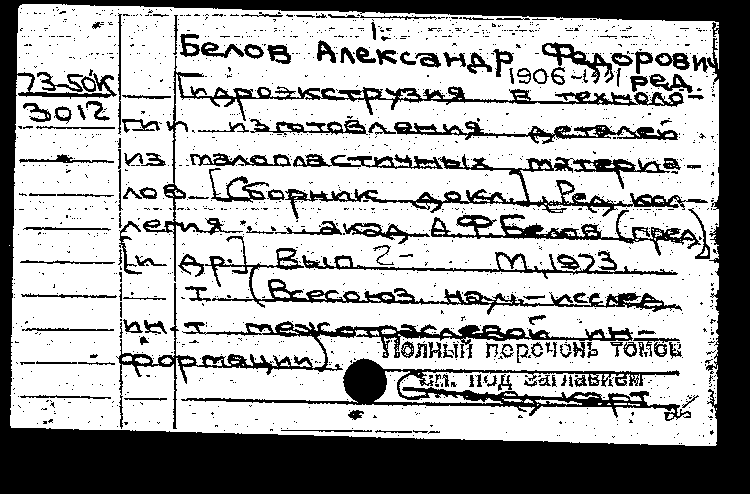 1.
Белов Александр Федорович
1906-1991 ред.
73-50К
3012
Гидроэкструзия в техноло-
гии изготовления деталей
из малопластичных материа-
лов [Сборник докл.] Ред. кол-
легия: ... акад. А.Ф. Белов (пред.)
[и др.] Вып 2- М., 1973.
т. (Всесоюз. науч.-исслед.
ин-т межотраслевой ин-
формации).
Полный перечень томов
см. под заглавием
карт